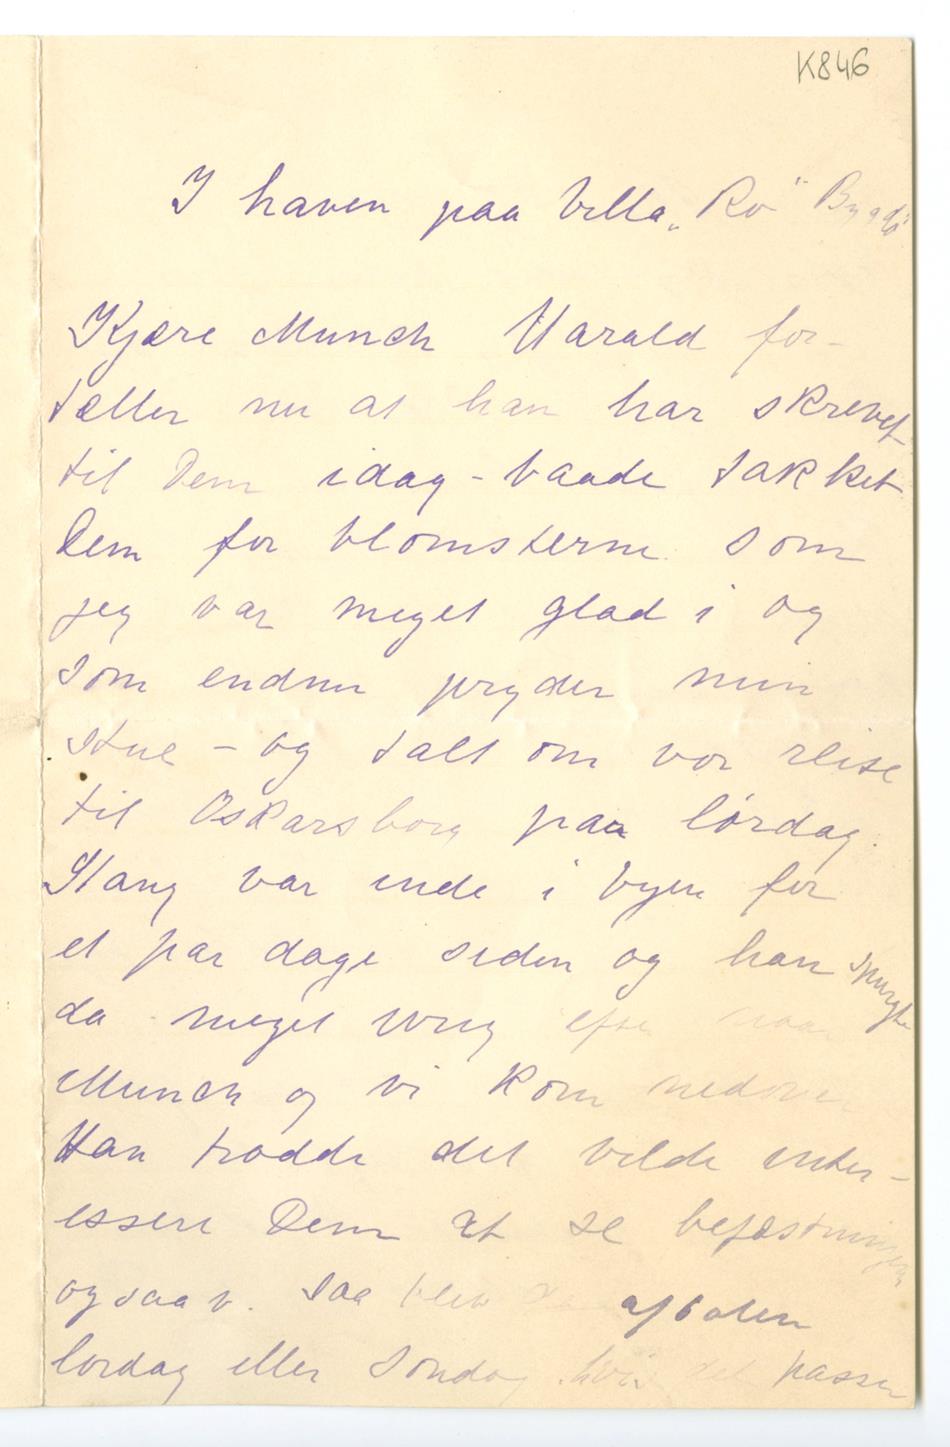 K846
I haven paa Villa „Rö" Bygdö
Kjære Munch Harald for-
tæller nu at han har skrevet
til Dem idag – baade takket
Dem for blomsterne som
jeg var meget glad i og
som endnu pryder min
stue – og talt om vor reise
til Oskarsborg paa lørdag.
Stang var inde i byen for
et par dage siden og han spurgte
da meget ivrig efter naar
Munch og vi kom nedover
Han trodde det vilde inter-
essere Dem at se befæstningen
ogsaa v. Saa blev aftalen
lørdag eller Søndag hvis det passer